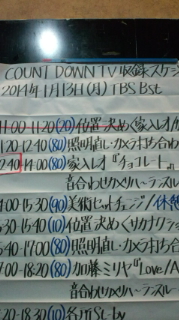 COUNT DOWN TV 収録スケジ
2014年1月13日(月) TBS Bst
11:00-11:20(20) 位置決め 家入レオ/
11:20-12:40(80) 照明直し・カメラ打ち合
12:40-14:00(80) 家入レオ『チョコレート』
音合わせ・カメリハ・ランスルー
:00-15:30(90) 美術セットチェンジ/休憩
:30-15:40(10) 位置決め サカナクション
5:40-17:00(80) 照明直し・カメラ打ち合
7:00-18:20(80) 加藤ミリヤ『Love/A
音合わせ・カメリハ・ランスルー
:20-18:30(10) 各所St-by